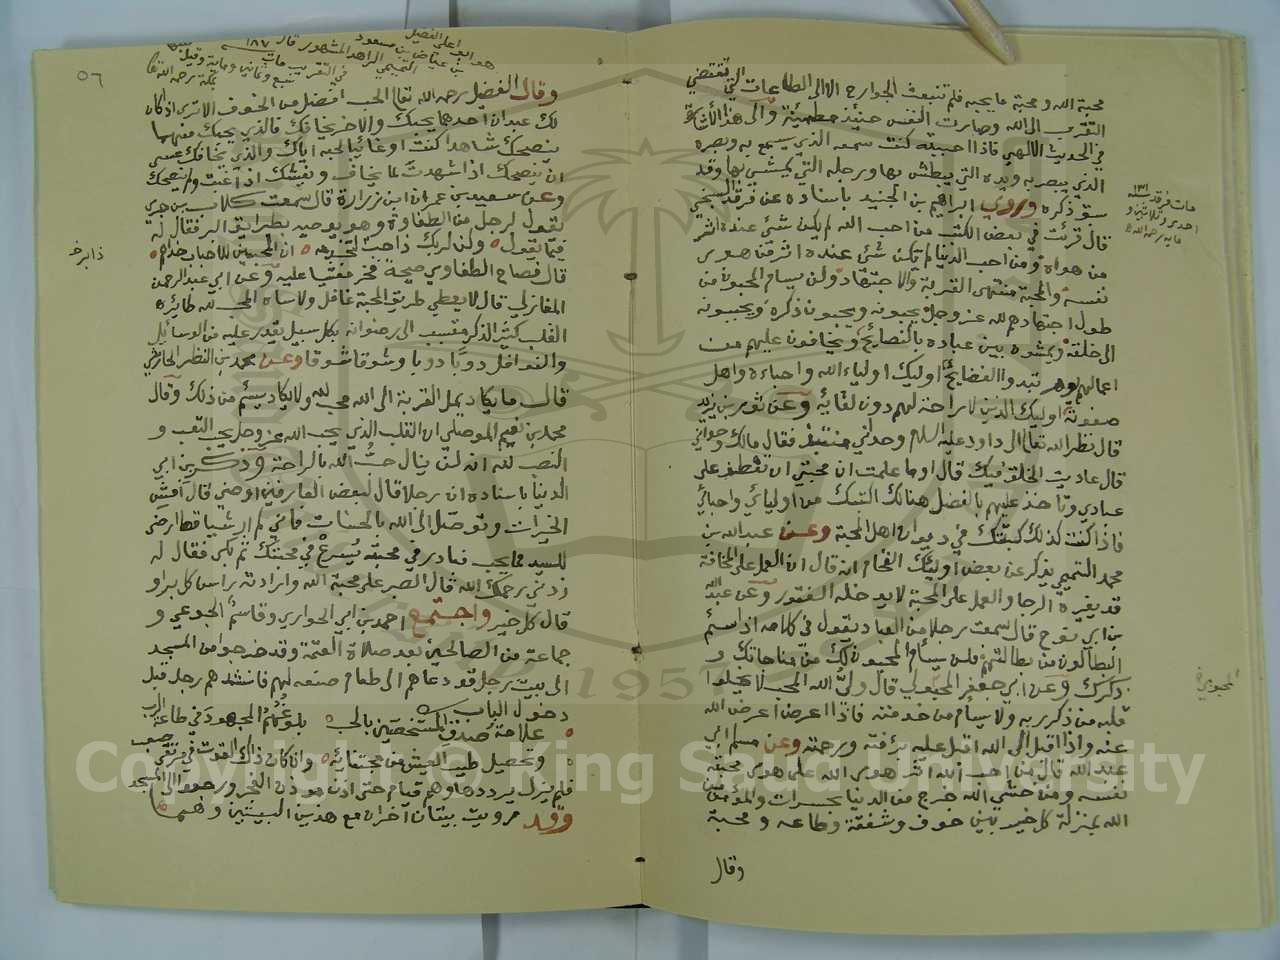 محبة الله ومحبة ما يحبه فلم تنبعث الجوارح الا الى الطاعات التي تقتضي
التقرب الى الله وصارت النفس حينئذ مطمئنة والى هذا الاشارة
في الحديث الالهي فاذا احببته كنت سمعه الذي يسمع به وبصره
الذي يبصر به ويده التي يبطش بها ورجله التي يمشي بها وقد
سبق ذكره وروي ابراهيم بن الجنيد باسناده عن فرقد السبخي
قال قرئت في بعض الكتب من احب الله لم يكن شئ عنده اثر
من هواه ومن احب الدنيا لم يكن شئ عنده اثر من هوى
نفسه والمحبة منتهى القربة والاجتهاد ولن يسام المحبون من
طول اجتهادهم لله عز وجل يحبونه ويحبون ذكره ويحببونه
الى خلقه يمشون بين عباده بالنصائح ويخافون عليهم من
اعمالهم يوم تبدوا الفضايح اوليك اولياء الله واحباءه واهل
صفوته اوليك الذين لا راحة لهم دون لقائه وعن ثور بن يزيد
قال نظر الله تعالى الى داود عليه السلام وحداني منتبذ فقال مالك وحداني
قال عاديت الخلق فيك قال اوما علمت ان محبتي ان تعطف على
عبادي وتاخذ عليهم بالفضل هنالك اكتبك من اوليائي واحبائي
فاذا كنت كذلك كتبتك في ديوان اهل المحبة وعن عبد الله بن
محمد التميمي يذكر عن بعض اوليك انه قال ان العمل على المخافة
قد يغيره الرجا والعمل على المحبة لا يدخله الفتور وعن عبد الله
بن ابي نوح قال سمعت رجلا من العباد يقول في كلامه اذا سئم
البطالون من بطالتهم فلن يسأم المحبون لك من مناجاتك و
ذكرك وعن ابي جعفر المحولي قال ولي الله المحب لله لا يخلوا
قلبه من ذكر ربه ولا يسام من خدمته فاذا اعرض اعرض الله
عنه واذا اقبل الى الله اقبل عليه برأفته ورحمته وعن مسلم ابي
عبد الله قال من احب الله اثر هوى الله على هوى محبته
نفسه ومن خشي الله خرج من الدنيا بحسرات والمؤمن من
الله بمنزلة كل خير بين خوف وشفقة وطاعه ومحبة
وقال
مات فرقد ١٣١
احدى وثلاثين و
مايه رحمه الله
المحبون
٥٦
هو ابو علي الفضيل
بن عياض بن مسعود
التميمي الزاهد المشهور قال
في التقريب مات ١٨٧
سبع وثمانين وماية وقيل
بمكة رحمه الله
وقال الفضيل رحمه الله تعالى الحب افضل من الخوف الا ترى اذا كان
لك عبدان احدهما يحبك والاخر يخافك فالذي يحبك منهما
ينصحك شاهدا كنت او غائبا لحبه اياك والذي يخافك عسى
ان ينصحك اذا شهدت لما يخاف ويغشك اذا غبت ولم ينصحك
وعن سعيد بن عمران ابن زرارة قال سمعت كلاب بن جري
يقول لرجل من الطفاوة وهو يوصيه بطرايق البر فقال له
فيما يقول ولكن لربك ذا حب لتخدمه ان المحبين للاحباب خدام
ذابر خ
قال فصاح الطفاوي صيحة فخر مغشيا عليه وعن ابي عبد الرحمن
المغازلي قال لا يعطي طريق المحبة غافل ولا ساه المحب لله طائره
القلب كثير الذكر متسبب الى رضوانه بكل سبيل يقدر عليه من الوسايل
والنوافل دوبا دوبا وشوقا شوقا وعن محمد بن النظر الحارثي
قال ما يكاد يمل القربة الى الله محب لله ولا يكاد يسئم من ذلك وقال
محمد بن نعيم الموصلي ان القلب الذي يحب الله عز وجل يحب التعب و
النصب لله انه لن ينال حب الله بالراحة وذكر بن ابي
الدنيا باسناده ان رجلا قال لبعض العارفين اوصني قال افش
الخيرات وتوصل الى الله بالحسنات فاني لم ار شيا قط ارضى
للسيد مما يحب فبادر في محبته يسرع في محبتك ثم بكى فقال له
زدني رحمك الله قال الصبر على محبة الله وارادته راس كل بر او
قال كل خير واجتمع احمد بن ابي الحواري وقاسم الجوعي و
جماعة من الصالحين بعد صلاة العتمة وقد خرجوا من المسجد
الى بيت رجل قد دعاهم الى طعام صنعه لهم فانشدهم رجل قبل
دخول الباب
علامة صدق المستخصين بالحب بلوغهم المجهود في طاعة الرب
وتحصيل طيب العيش من مجتنائه وان كان ذاك القوت في مرتقى صعب
فلم يزل يرددها وهم قيام حتى اذن موذن الفجر ورجعوا الى المسجد
وقد رويت بيتان اخران مع هذين البيتين وهما
Copyright © King Saud University
1957